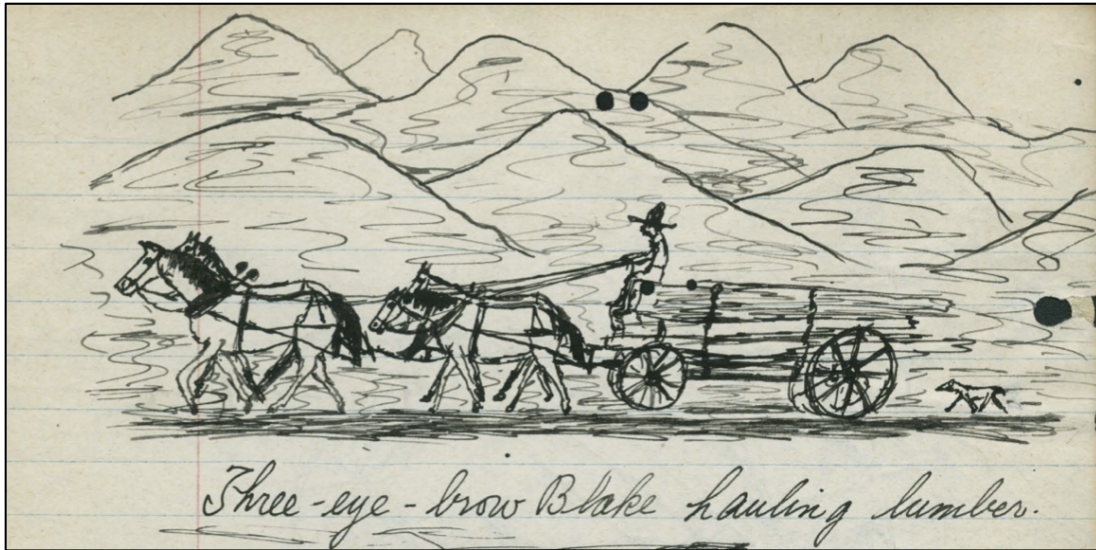 Three-eye-brow Blake hauling lumber.